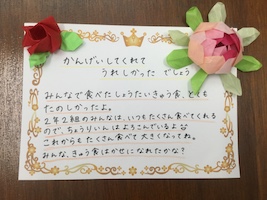 かんげいしてくれて
うれしかった でしょう
みんなで食べたしょうたいきゅう食、とても
たのしかったよ。
2年2組のみんなは、いつもたくさん食べてくれる
ので、ちょうりいんはよろこんでいるよ
これからもたくさん食べて大きくなってね。
みんな、きゅう食はかせになれたかな？